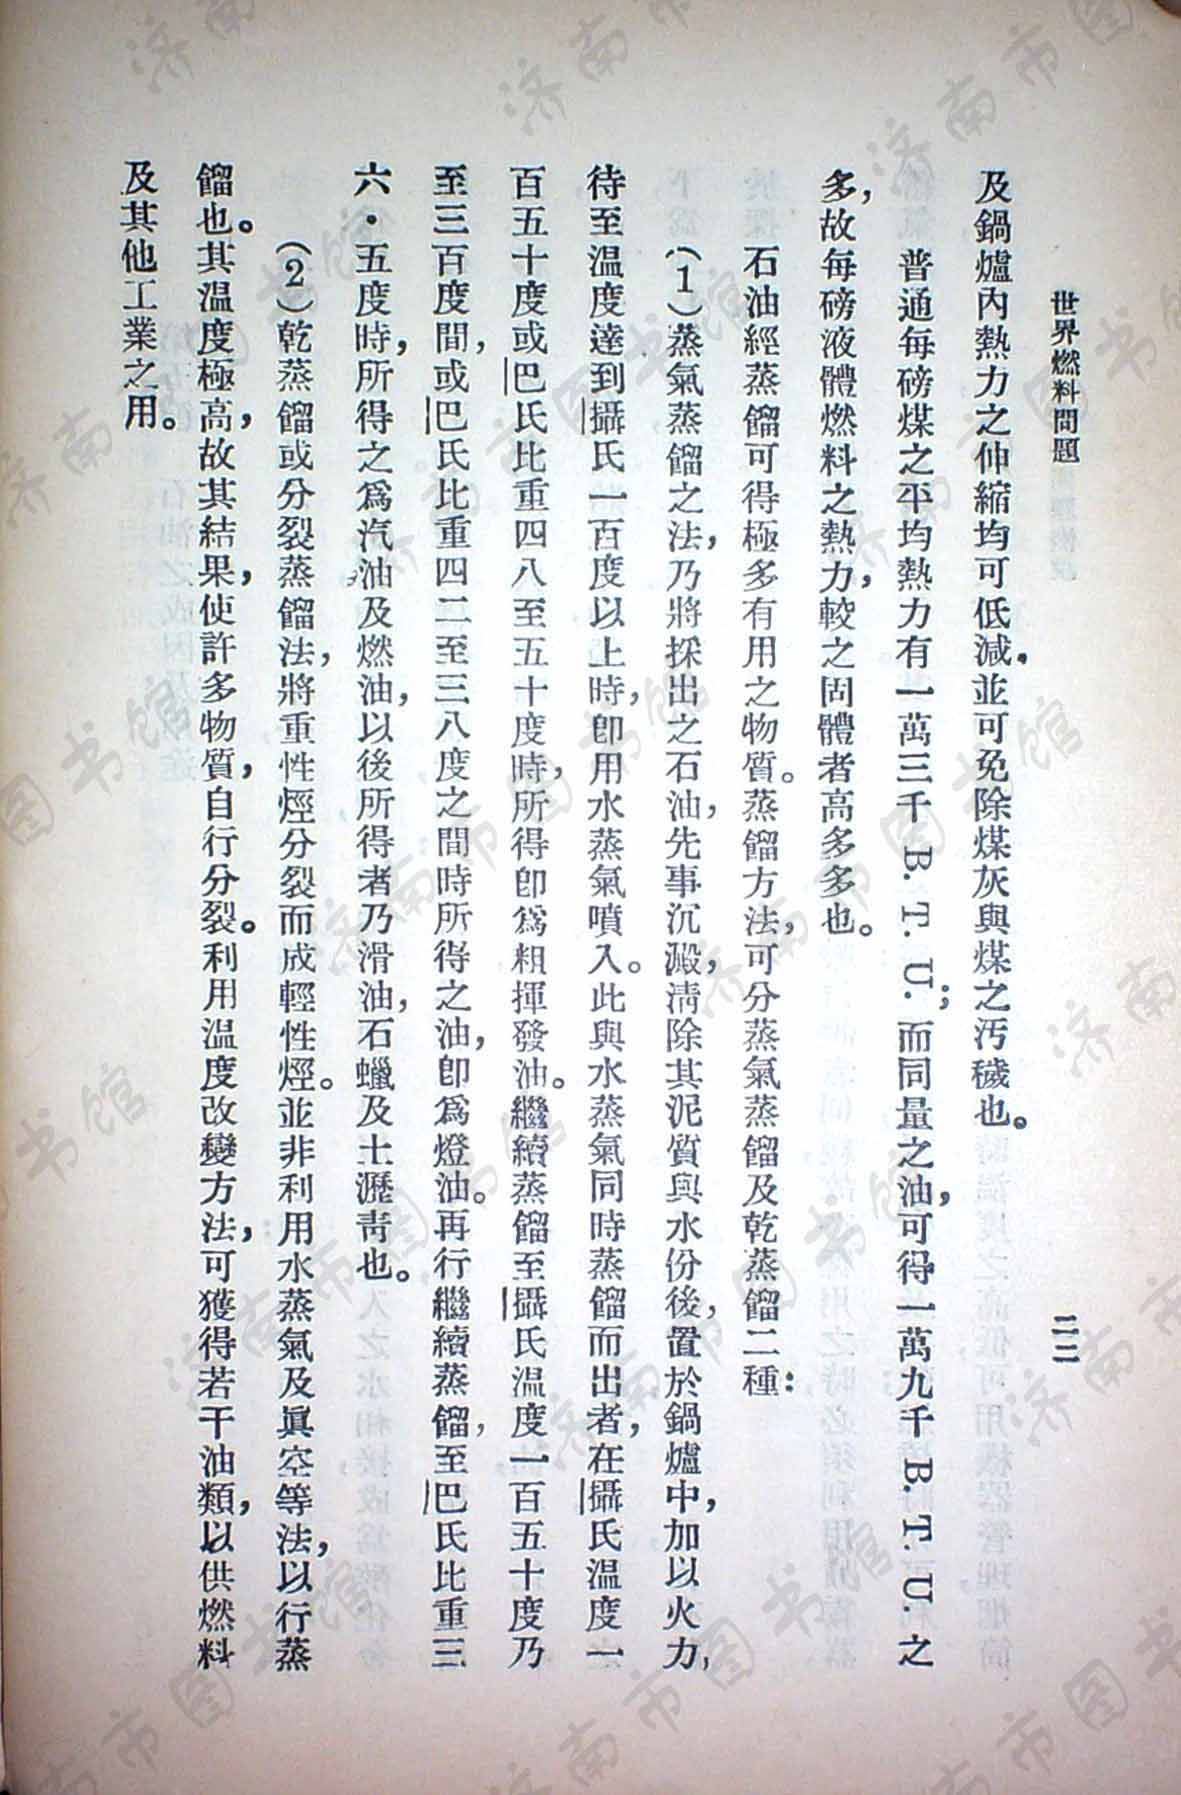 世界燃料問題
二二
及鍋爐內熱力之伸縮均可低減，並可免除煤灰與煤之汚穢也。
普通每磅煤之平均熱力有一萬三千 B. T. U.；而同量之油，可得一萬九千 B. T. U. 之
多，故每磅液體燃料之熱力，較之固體者高多多也。
石油經蒸餾可得極多有用之物質。蒸餾方法，可分蒸氣蒸餾及乾蒸餾二種：
（1）蒸氣蒸餾之法，乃將採出之石油，先事沉澱，淸除其泥質與水份後，置於鍋爐中，加以火力，
待至溫度達到攝氏一百度以上時，卽用水蒸氣噴入。此與水蒸氣同時蒸餾而出者，在攝氏溫度一
百五十度或巴氏比重四八至五十度時，所得卽爲粗揮發油。繼續蒸餾至攝氏溫度一百五十度乃
至三百度間，或巴氏比重四二至三八度之間時所得之油，卽爲燈油。再行繼續蒸餾，至巴氏比重三
六·五度時，所得之爲汽油及燃油，以後所得者乃滑油，石蠟及土瀝靑也。
（2）乾蒸餾或分裂蒸餾法，將重性烴分裂而成輕性烴。並非利用水蒸氣及眞空等法，以行蒸
餾也。其溫度極高，故其結果，使許多物質，自行分裂。利用溫度改變方法，可獲得若干油類，以供燃料
及其他工業之用。
济南市图书馆